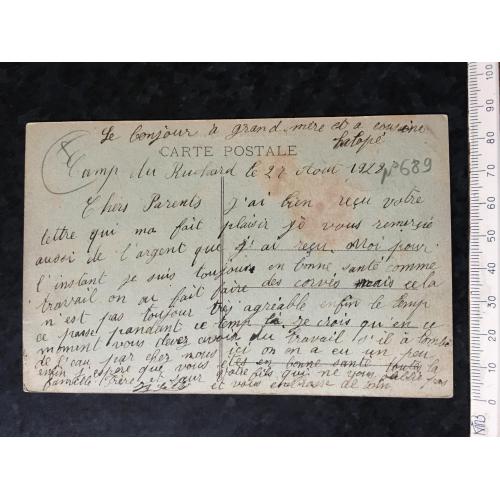 Le bonjour à grand mère et a cousine
CARTE POSTALE
Camp du Ruchard le 27 Août 1922
N°689
Chers Parents j'ai bien reçu votre
lettre qui ma fait plaisir je vous remercie
aussi de l'argent que j'ai reçu. Moi pour
l'instant je suis toujours en bonne santé comme
travail on au fait faire des corvés mais cela
n'est pas toujour très agréable enfin le temp
ce passe pendant ce temp la je crois qu'en ce
moment vous devez avoir du travail s'il à tombé
de l'eau par chez nous ici on en a eu un peu
enfin j'espère que vous êtes en bonne santé toute la
famille Frère et sœur votre fils qui ne vous oublie pas
et vous embrasse de loin